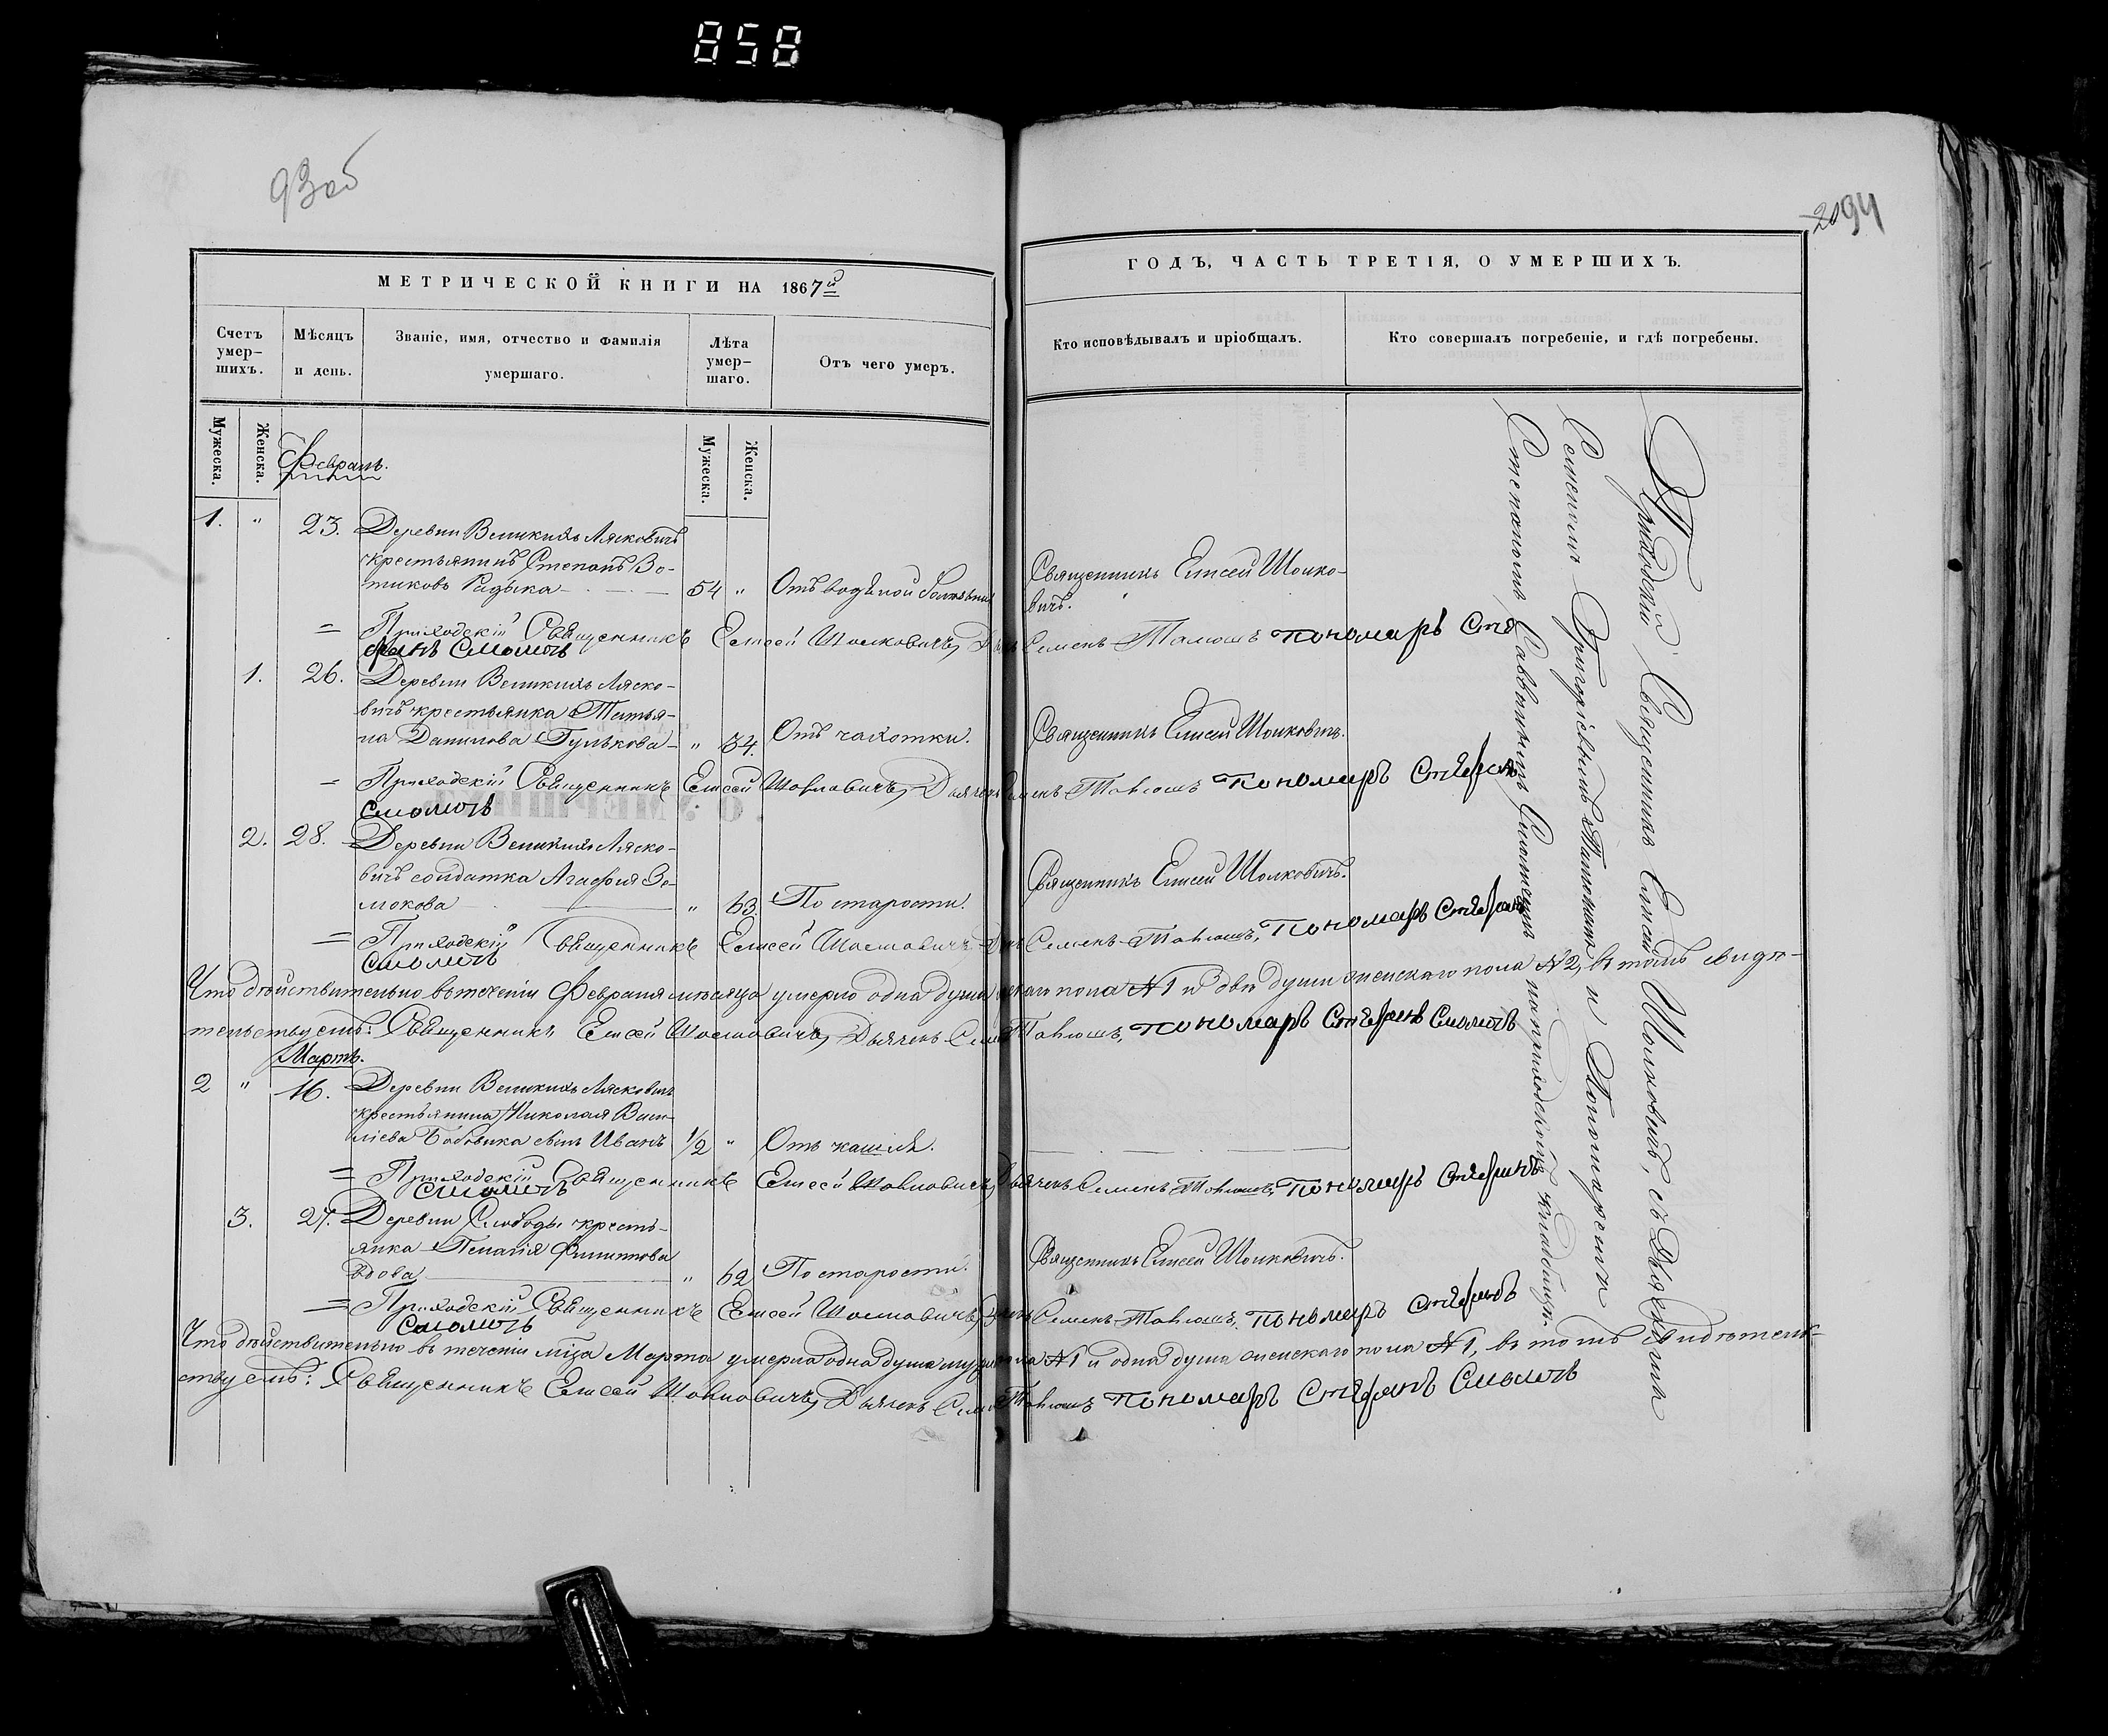 858
93об
2094
МЕТРИЧЕСКОЙ КНИГИ НА 1867й
ГОДЪ, ЧАСТЬ ТРЕТІЯ, О УМЕРШИХЪ.
Счетъ умер-
шихъ.
Мѣсяцъ
и день.
Званіе, имя, отчество и фамилія
умершаго.
Лѣта
умер-
шаго.
Отъ чего умеръ.
Кто исповѣдывалъ и пріобщалъ.
Кто совершалъ погребеніе, и гдѣ погребены.
Мужеска.
Женска.
Февраль.
Мужеска.
Женска.
1. " 23. Деревни Великихъ Лясковичъ
крестьянинъ Степанъ Зо-
тиковъ Радыка 54 " Отъ водяной болѣзни
Священникъ Елисей Шолко-
вичъ.
Приходскій Священникъ Елисей Шолковичъ, Семенъ пономарь Сте
фанъ Смоличъ
1. 26. Деревни Великихъ Ляско-
вичъ крестьянка Татья-
на Данилова Гулькова " 34. Отъ чахотки. Священникъ Елисей Шолковичъ.
Приходскій Священникъ Елисей Шолковичъ, Дьячекъ Семенъ Пономарь Стефанъ
Смоличъ
2. 28. Деревни Великихъ Ляско-
вичъ солдатка Агафія
" 63. По старости. Священникъ Елисей Шолковичъ.
Приходскій Священникъ Елисей Шолковичъ Семенъ Пономарь Стефанъ
Смоличъ
Что дѣйствительно въ теченіи Февраля мѣсяца умерло одна душа пола №1 и двѣ души женскаго пола №2, въ томъ свидѣ-
тельствуемъ: Священникъ Елисей Шолковичъ, Дьячекъ пономарь Стефанъ Смоличъ
Мартъ.
2 " 16. Деревни Великихъ Лясковичъ
крестьянина Николая Васи-
лiева Бобовика сынъ Иванъ 1/2 " Отъ кашля.
Приходскій Священникъ Елисей Шолковичъ, Дьячекъ Семенъ Пономарь Стефанъ
Смоличъ
3. 27. Деревни Слободы кресть-
янка Пелагія Филиппова
вдова " 62 По старости. Священникъ Елисей Шолковичъ.
Приходскій Священникъ Елисей Шолковичъ, Семенъ Пономарь Стефанъ
Смоличъ
Что дѣйствительно въ теченіи мца Марта умерла одна душа муж. пола №1 и одна душа женскаго пола №1, въ томъ свидѣтель-
ствуемъ: Священникъ Елисей Шолковичъ, Дьячекъ пономарь Стефанъ Смоличъ
Приходскій Священникъ Елисей Шолковичъ, съ Дьячкомъ
Семеномъ Григоріевымъ и Пономаремъ
Степаномъ Саввинымъ Смоличемъ на приходскомъ кладбищѣ.